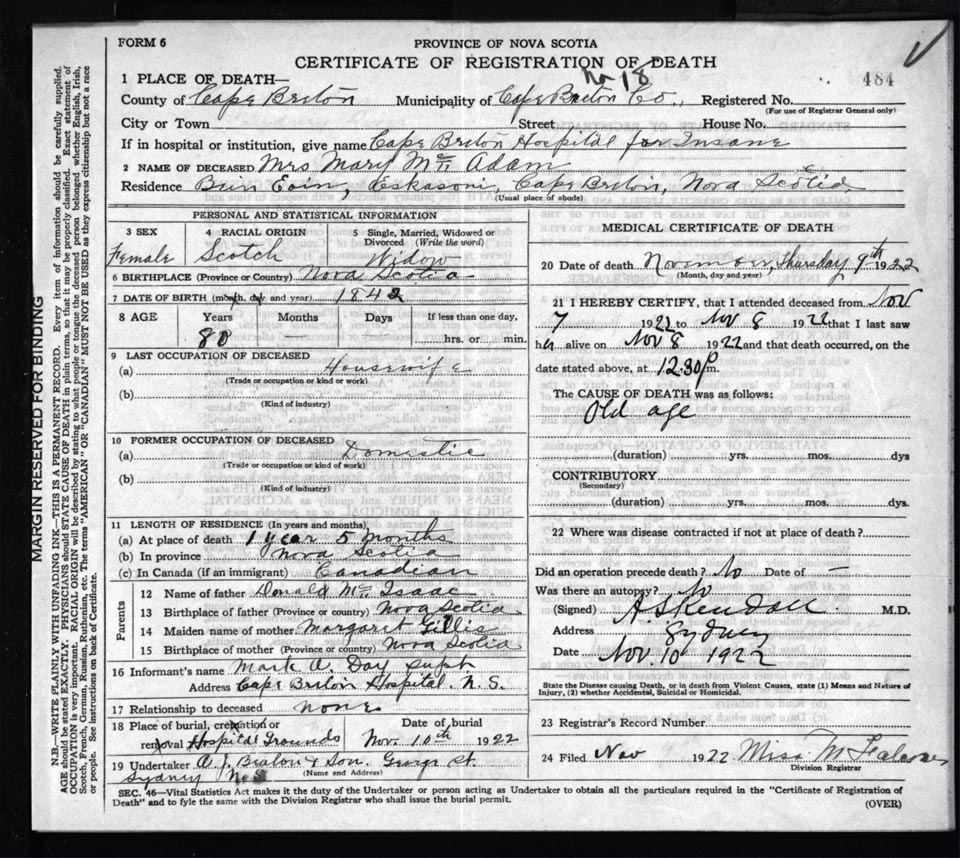 FORM 6
PROVINCE OF NOVA SCOTIA
CERTIFICATE OF REGISTRATION OF DEATH
No 18
484
1 PLACE OF DEATH—
County of Cape Breton Municipality of Cape Breton Co., Registered No.
(For use of Registrar General only)
City or Town Street House No.
If in hospital or institution, give name Cape Breton Hospital for Insane
2 NAME OF DECEASED Mrs Mary Mc Adam
Residence Eskasoni, Cape Breton, Nova Scotia
(Usual place of abode)
PERSONAL AND STATISTICAL INFORMATION
3 SEX 4 RACIAL ORIGIN 5 Single, Married, Widowed or Divorced (Write the word)
Female Scotch Widow
6 BIRTHPLACE (Province or Country) Nova Scotia
7 DATE OF BIRTH (month, day and year) 1842
8 AGE Years Months Days If less than one day,
80 — hrs. or min.
9 LAST OCCUPATION OF DECEASED
(a) Housewife
(Trade or occupation or kind or work)
(b)
(Kind of industry)
10 FORMER OCCUPATION OF DECEASED
(a) Domestic
(Trade or occupation or kind of work)
(b)
(Kind of industry)
11 LENGTH OF RESIDENCE (In years and months)
(a) At place of death 1 year 5 months
(b) In province Nova Scotia
(c) In Canada (if an immigrant) Canadian
Parents
12 Name of father Donald Mc Isaac
13 Birthplace of father (Province or country) Nova Scotia
14 Maiden name of mother Margaret Gillis
15 Birthplace of mother (Province or country) Nova Scotia
16 Informant's name Mark A. Day Supt
Address Cape Breton Hospital. N. S.
17 Relationship to deceased none
18 Place of burial, cremation or Date of burial
removal Hospital Grounds Nov. 10th 1922
19 Undertaker A. J. Beaton & Son. George St.
(Name and Address)
Sydney N. S.
MEDICAL CERTIFICATE OF DEATH
20 Date of death November, Thursday 9th 1922
(Month, day and year)
21 I HEREBY CERTIFY, that I attended deceased from Nov
7 1921 to Nov 8 1922 that I last saw
her alive on Nov 8 1922 and that death occurred, on the
date stated above, at 12.30 p m.
The CAUSE OF DEATH was as follows:
Old age
(duration) yrs. mos. dys
CONTRIBUTORY
(Secondary)
(duration) yrs. mos. dys.
22 Where was disease contracted if not at place of death?
Did an operation precede death? No Date of —
Was there an autopsy? No
(Signed) A S Kendall M.D.
Address Sydney
Date Nov. 10 1922
State the Disease causing Death, or in death from Violent Causes, state (1) Means and Nature of
Injury, (2) whether Accidental, Suicidal or Homicidal.
23 Registrar's Record Number
24 Filed Nov 9 1922 Miss M
Division Registrar
SEC. 46—Vital Statistics Act makes it the duty of the Undertaker or person acting as Undertaker to obtain all the particulars required in the "Certificate of Registration of
Death" and to fyle the same with the Division Registrar who shall issue the burial permit.
(OVER)
MARGIN RESERVED FOR BINDING
N.B.—WRITE PLAINLY WITH UNFADING INK—THIS IS A PERMANENT RECORD. Every item of information should be carefully supplied.
AGE should be stated EXACTLY. PHYSICIANS should STATE CAUSE OF DEATH in plain terms, so that it may be properly classified. Exact statement of
OCCUPATION is very important. RACIAL ORIGIN will be described by stating to what people or tongue the deceased person belonged whether English, Irish,
Scotch, French, German, Russian, Ruthenian, etc. The terms "AMERICAN" OR "CANADIAN" MUST NOT BE USED as they express citizenship but not a race
or people. See instructions on back of Certificate.